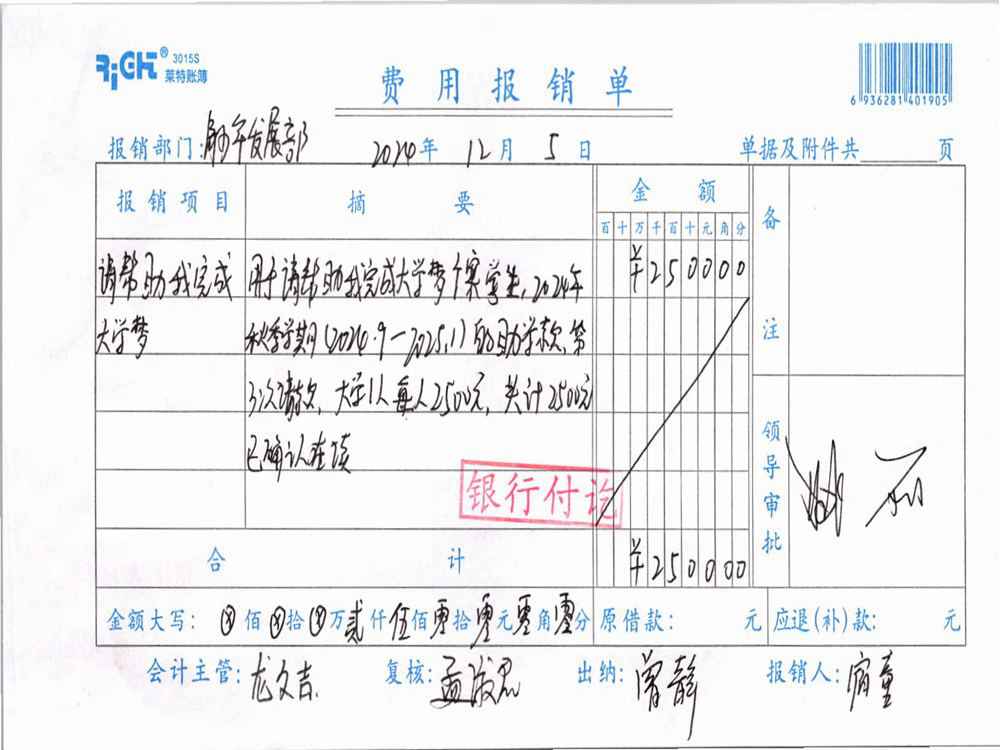 RiGHT® 3015S
莱特账簿
费用报销单
6 936281 401905
报销部门: 发展部 2024年 12月 5日 单据及附件共 页
报销项目 摘要 金额 备注
百十万千百十元角分
请帮助我完成 用于请帮助我完成大学梦个案学生,2024年 ¥250000
大学梦 秋季学期(2024.9-2025.1)的助学款,第
3次请款,大学1人每人2500元,共计2500元
已确认在读
银行付讫
领导审批
合计 ¥250000
金额大写: ⊗佰⊗拾⊗万贰仟伍佰零拾零元零角零分 原借款: 元 应退(补)款: 元
会计主管: 龙文吉 复核: 孟 出纳: 曾静 报销人: 童